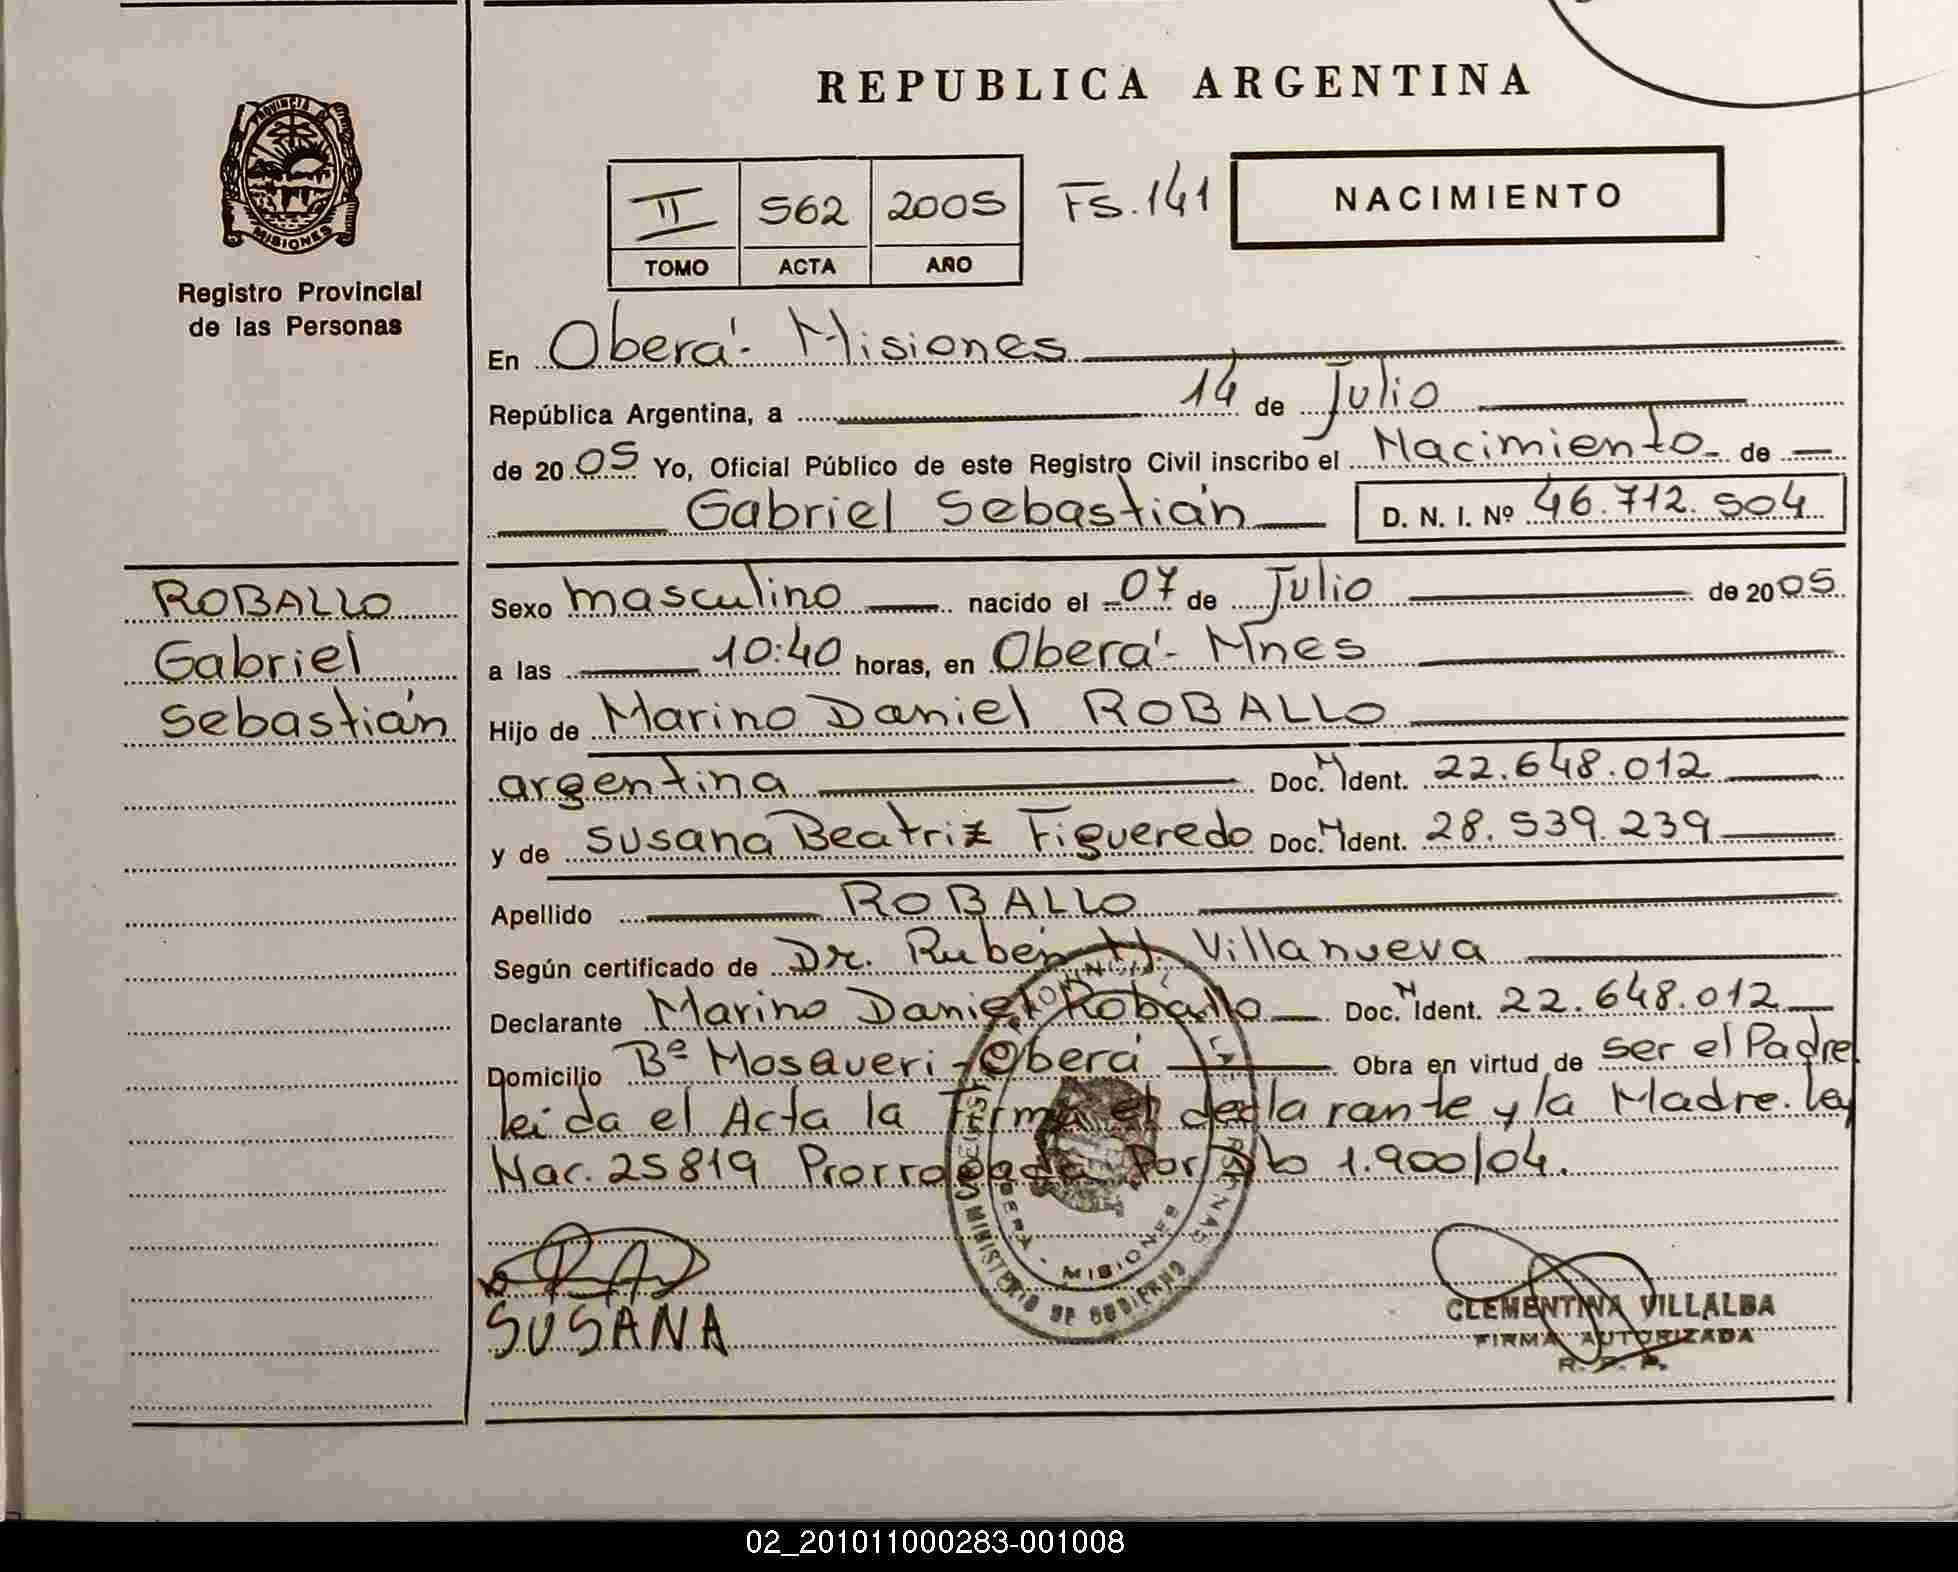 REPUBLICA ARGENTINA
PROVINCIA DE
MISIONES
Registro Provincial
de las Personas
II 562 2005 Fs. 141
TOMO ACTA AÑO
NACIMIENTO
En Oberá - Misiones
República Argentina, a 14 de Julio
de 2005 Yo, Oficial Público de este Registro Civil inscribo el Nacimiento de
Gabriel Sebastián D. N. I. Nº 46.712.504
ROBALLO
Gabriel
Sebastián
Sexo masculino nacido el 07 de Julio de 2005
a las 10:40 horas, en Oberá - Mnes
Hijo de Marino Daniel ROBALLO
argentina Doc. N Ident. 22.648.012
y de Susana Beatriz Figueredo Doc. N Ident. 28.539.239
Apellido ROBALLO
Según certificado de Dr. Rubén H. Villanueva
Declarante Marino Daniel Roballo Doc. N Ident. 22.648.012
Domicilio Bº Mosqueri - Oberá Obra en virtud de ser el Padre
leida el Acta la Firma el declarante y la Madre. Ley
Nac. 25819 Prorrogada Por Dto 1.900/04.
MINISTERIO DE GOBIERNO
MISIONES
SUSANA
CLEMENTINA VILLALBA
FIRMA AUTORIZADA
R. P. P.
02_201011000283-001008